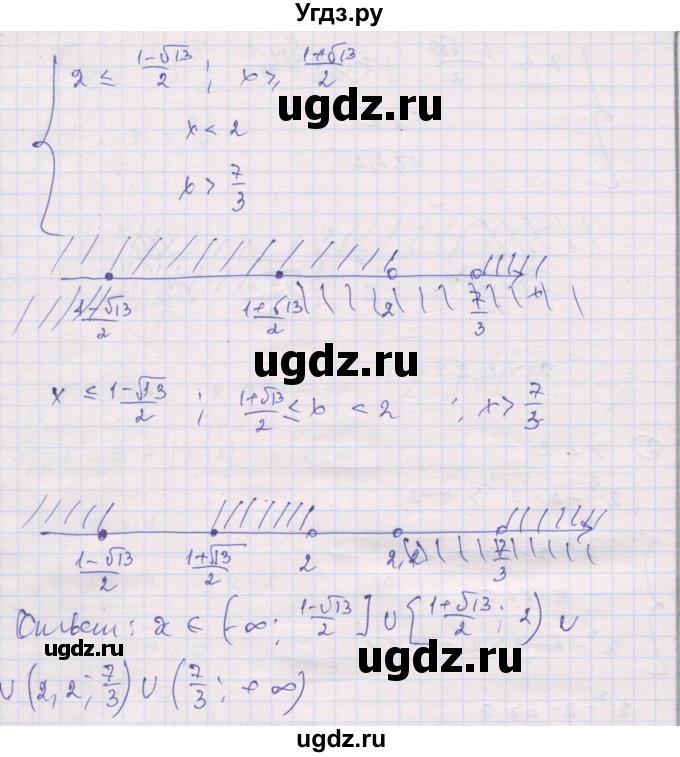 Угдз.ру
2 ≤ (1-√13)/2 ; x ≥ (1+√13)/2
ugdz.ru
x < 2
x > 7/3
(1-√13)/2 (1+√13)/2 2 7/3
ugdz.ru
x ≤ (1-√13)/2 ; (1+√13)/2 ≤ x < 2 ; x > 7/3
ugdz.ru
(1-√13)/2 (1+√13)/2 2 2,2 7/3
Ответ: x ∈ (-∞; (1-√13)/2] ∪ [(1+√13)/2; 2) ∪
ugdz.ru ugdz.ru
∪ (2,2; 7/3) ∪ (7/3; +∞)
ugdz.ru